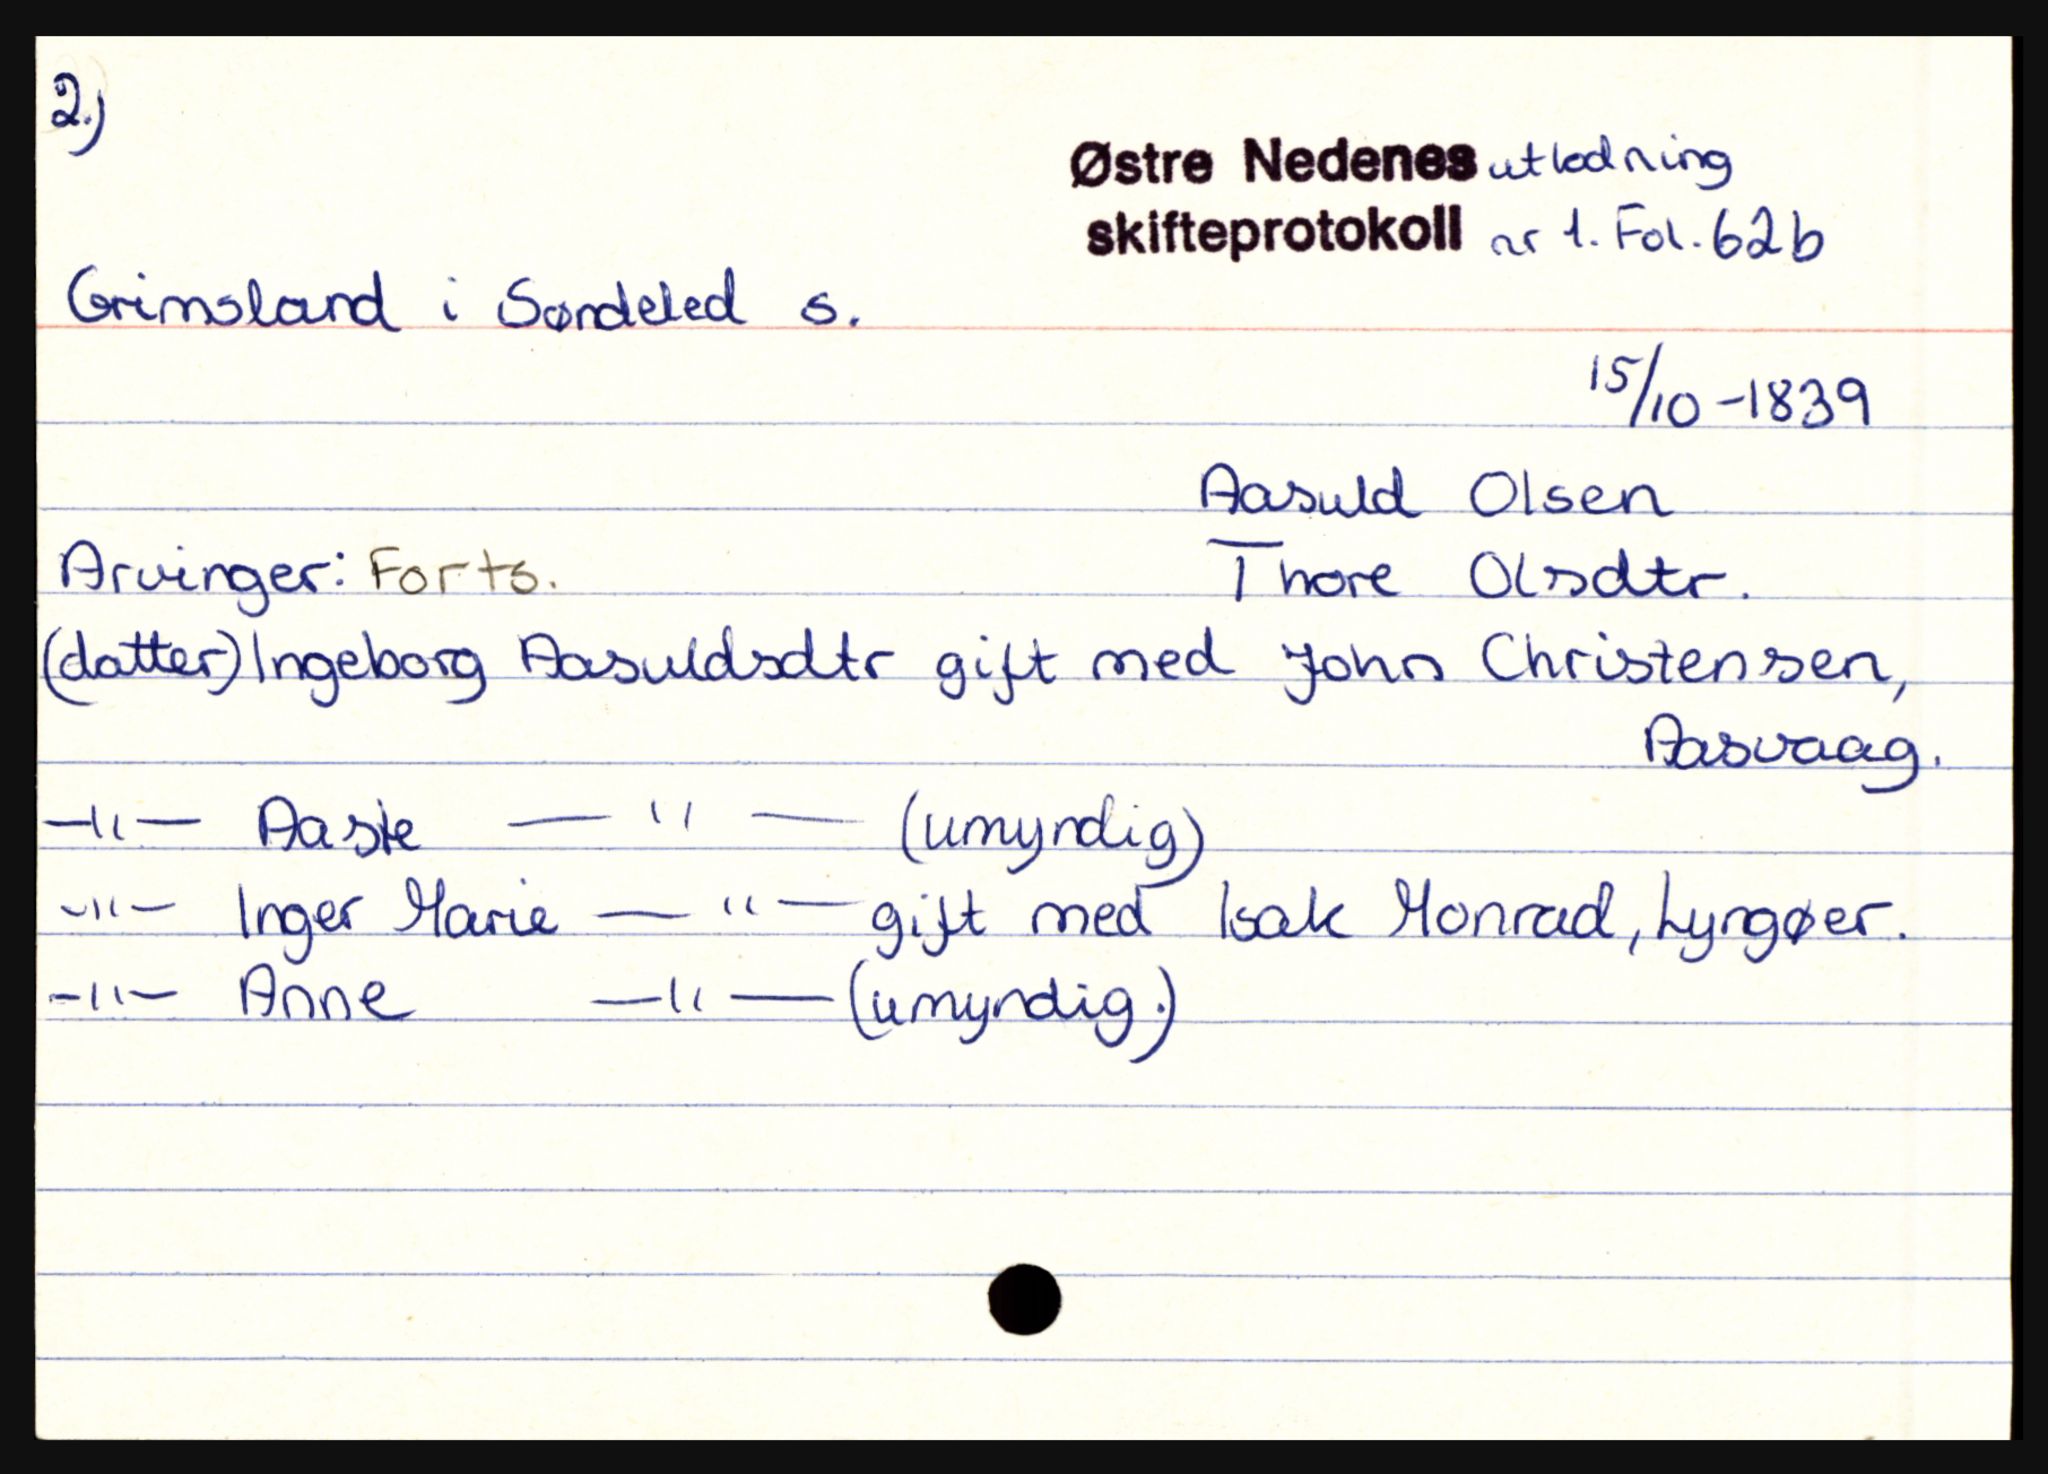 2.)
Østre Nedenes utlodning
skifteprotokoll nr 1. Fol. 62b
Grimsland i Søndeled s.
15/10-1839
Aasuld Olsen
Arvinger: Forts. Thore Olsdtr.
(datter) Ingeborg Aasuldsdtr gift med John Christensen,
Aasvaag.
—"— Aaste —"— (umyndig)
—"— Inger Marie —"— gift med Isak Monrad, Lyngøer.
—"— Anne —"— (umyndig.)